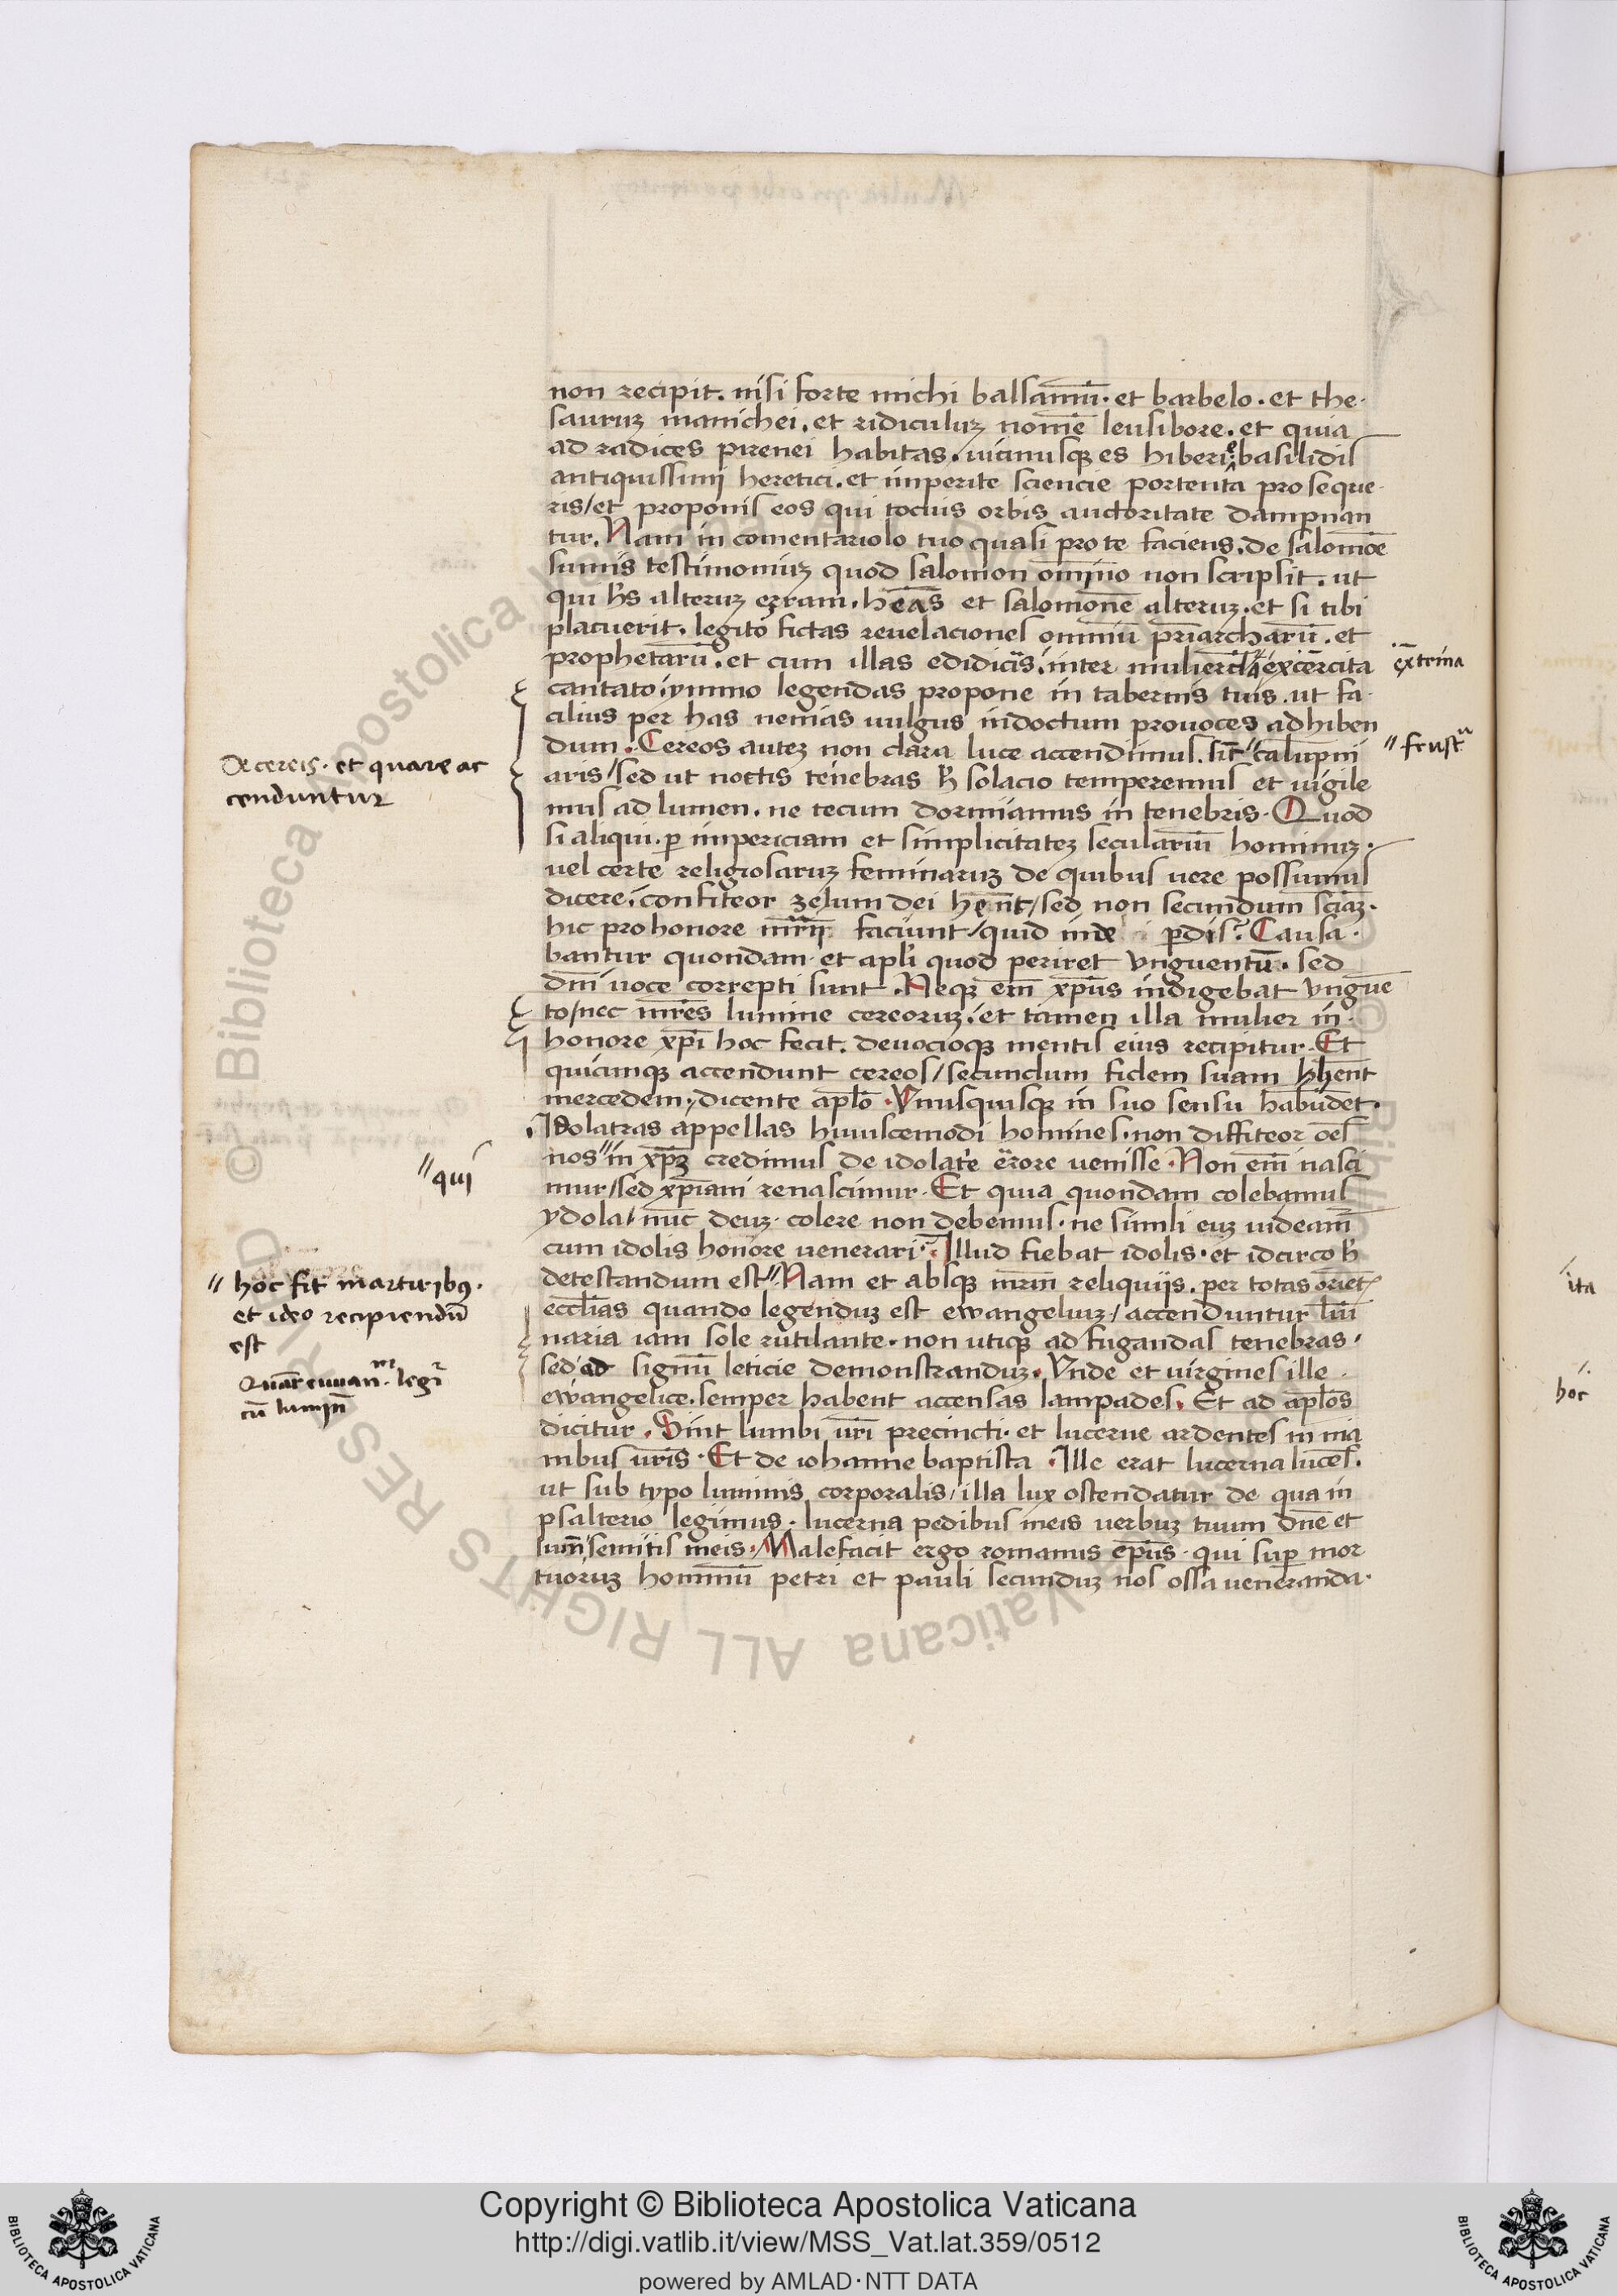 non recipit. nisi forte michi balsamū. et barbelo. et the
sauruꝫ manichei. et ridiculuꝫ nomē leusibore. et quia
ad radices pirenei habitas. uicinusqꝫ es hiberie basilidis
antiquissimi heretici. et imperite sciencie portenta proseque
ris/et proponis eos qui tocius orbis auctoritate dampnan
tur. Nam in comentariolo tuo quasi pro te faciens. de salomōe
sumis testimoniuꝫ quod salomon omīno non scripsit. ut
qui hn̄s alteruꝫ ezram. heās et salomonē alteruꝫ. et si tibi
placuerit. legito fictas reuelaciones omniū pr̄iarcharū. et
prophetarū. et cum illas edidicis. inter mulierclās excercita
cantato. ymmo legendas propone in tabernis tuis. ut fa
cilius per has nenias uulgus indoctum prouoces ad hiben
dum. Cereos auteꝫ non clara luce accendimus. sīc calupni
aris/sed ut noctis tenebras h̄ solacio temperemus et uigile
mus ad lumen. ne tecum dormiamus in tenebris. Quod
si aliqui. ꝑ impericiam et simplicitateꝫ seculariū hominuꝫ.
uel certe religiosaruꝫ feminaruꝫ de quibus uere possumus
dicere. confiteor zelum dei hēnt/sed non secundum sciāꝫ.
hic pro honore mr̄ij faciunt/quid inde ꝑdis? Causa
bantur quondam et apl̄i quod periret vnguentū. sed
dn̄i uoce correpti sunt. Neqꝫ em̄ xp̄us indigebat vnguē
to/nec mr̄es lumine cereoruꝫ. et tamen illa mulier in
honore xp̄i hoc fecit. deuocioqꝫ mentis eius recipitur. Et
quicunqꝫ accendunt cereos/secundum fidem suam hb̄ent
mercedem. dicente ap̄lo. Vnusquisqꝫ in suo sensu habūdet.
Idolatras appellas huiuscemodi homines. non diffiteor oēs
nos in xp̄ꝫ credimus de idolat̄e errore uenisse. Non em̄ nasci
mur/sed xp̄iani renascimur. Et quia quondam colebamus
ydola/nūc deuꝫ colere non debemus. ne simili euꝫ uideam̄
cum idolis honore uenerari. Illud fiebat idolis. et idcirco h̄
detestandum est. Nam et absqꝫ mr̄m reliquijs. per totas oriēt
eccl̄ias quando legenduꝫ est ewangeliuꝫ/accenduntur lūi
naria iam sole rutilante. non utiqꝫ ad fugandas tenebras.
sed ad signū leticie demonstranduꝫ. Vnde et uirgines ille
ewangelice. semper habent accensas lampades. Et ad ap̄los
dicitur. Sint lumbi ur̄i precincti. et lucerne ardentes in ma
nibus ur̄is. Et de iohanne baptista. Ille erat lucerna lucēs.
ut sub typo luminis corporalis/illa lux ostendatur de qua in
psalterio legimus. lucerna pedibus meis uerbuꝫ tuum dn̄e et
lumē semitis meis. Malefacit ergo romanus ep̄us. qui suꝑ mor
tuoruꝫ hominū petri et pauli secunduꝫ nos ossa ueneranda.
De cereis. et quare ac
cenduntur
"qui
" hoc fit martiribꝰ.
et ideo recipiendū
est
Quar̄ euuan. legi̅
cū lumin̄
ex̄trina
" frustᵃ
ita
hoc
Copyright © Biblioteca Apostolica Vaticana
http://digi.vatlib.it/view/MSS_Vat.lat.359/0512
powered by AMLAD·NTT DATA
BIBLIOTECA APOSTOLICA VATICANA
BIBLIOTECA APOSTOLICA VATICANA